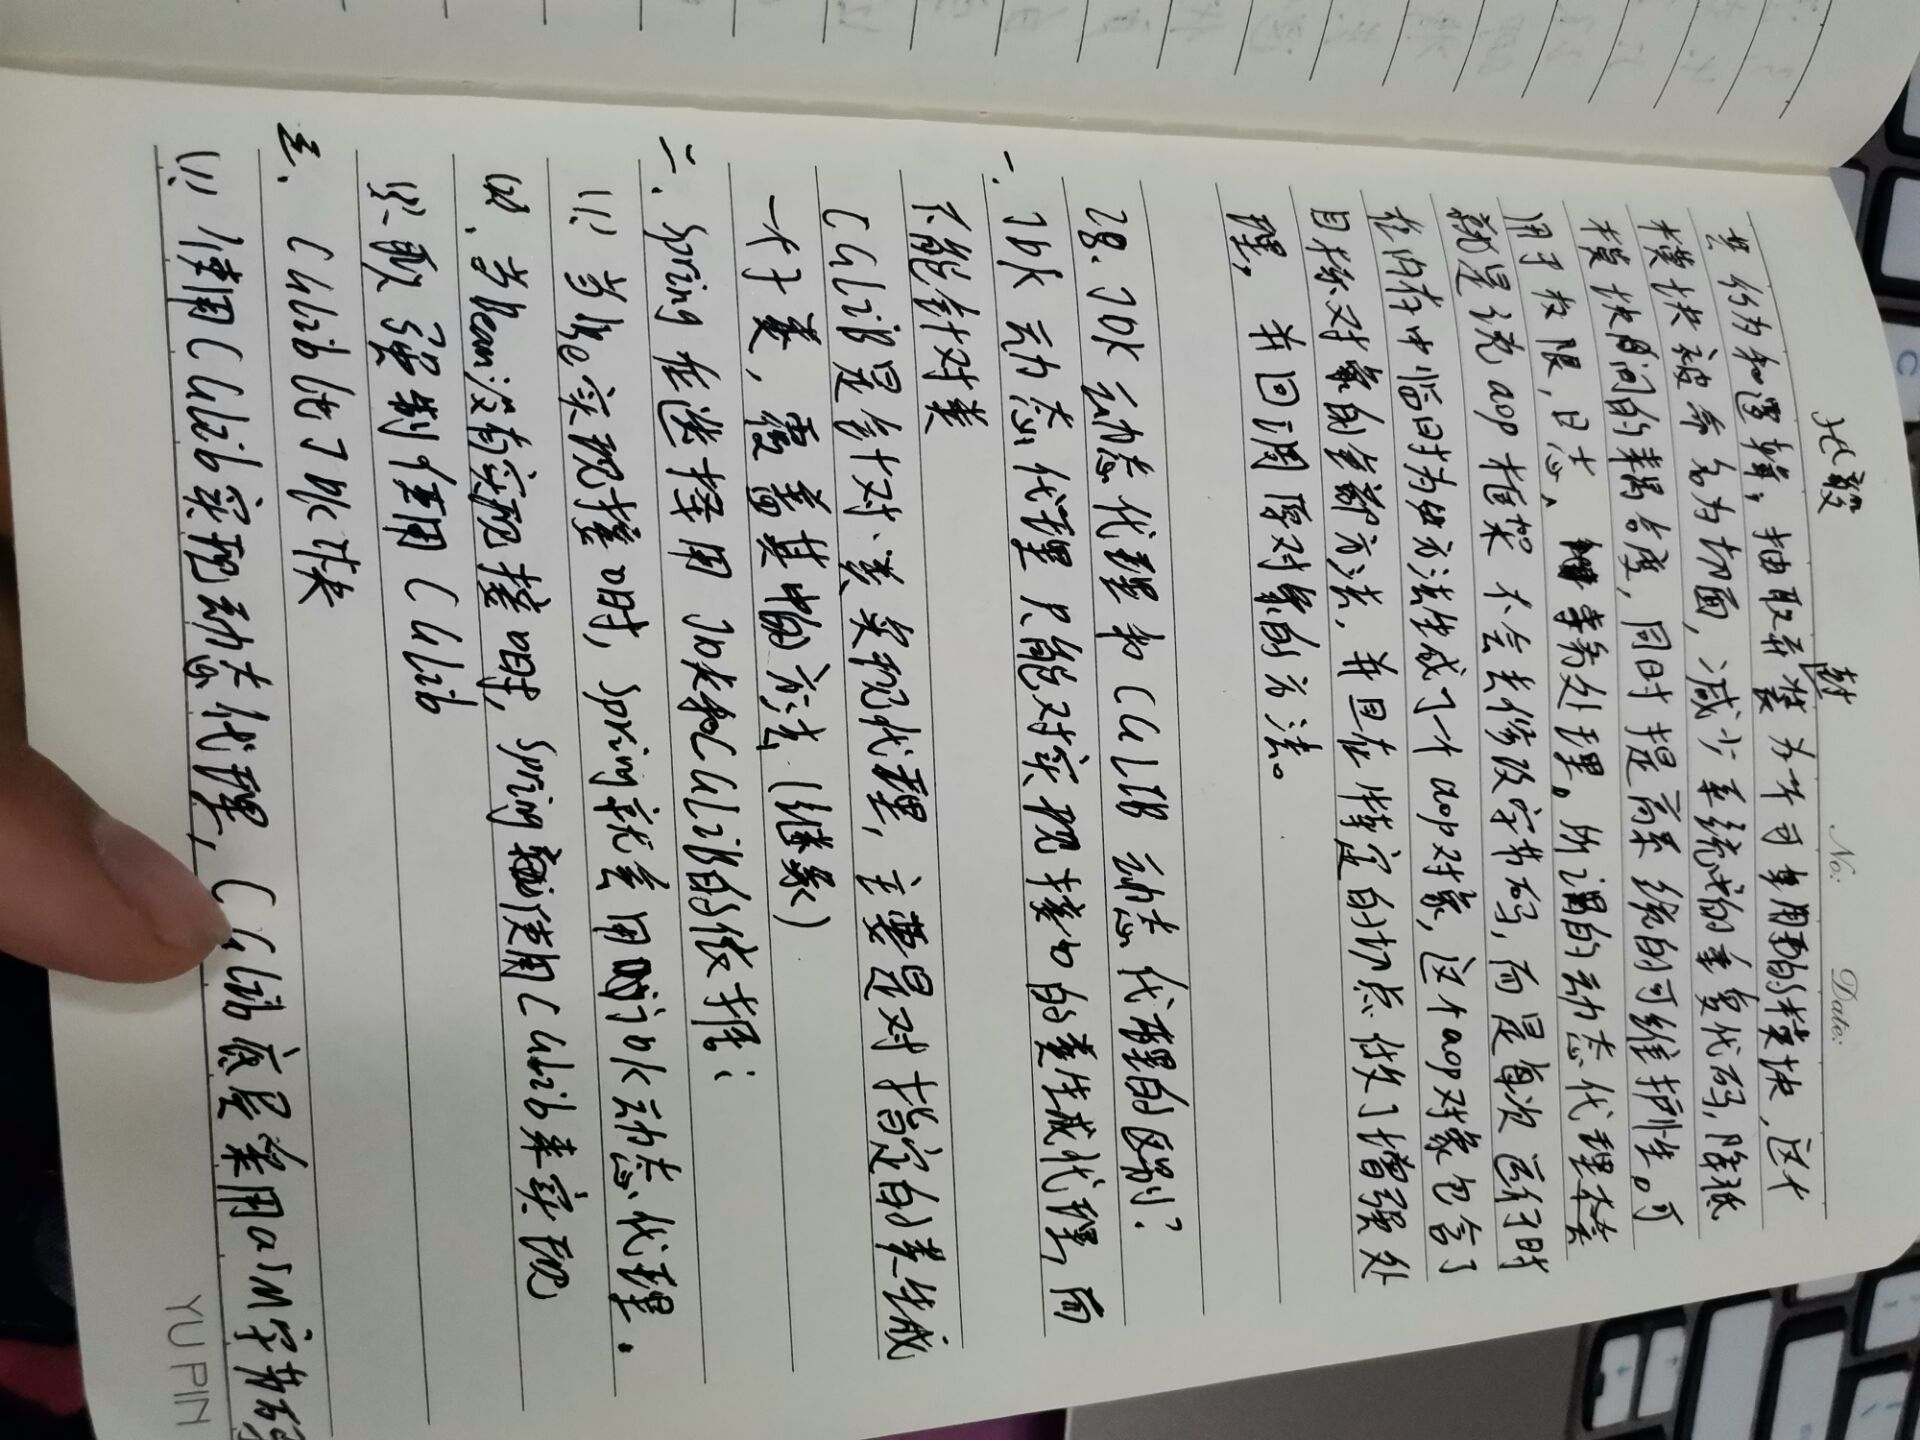 No:
Date:
共行为和逻辑，抽取并封装为一个可重用的模块，这个
模块被命名为切面，减少系统的重复代码，降低
模块间的耦合度，同时提高系统的可维护性。可
用于权限，日志、事务处理。所谓的动态代理
就是说aop框架不会去修改字节码，而是每次运行时
在内存中临时为方法生成了一个aop对象，这个aop对象包含了
目标对象的全部方法，并且在特定的切点做了增强处
理，并回调原对象的方法。
28. JDK动态代理和CGLIB动态代理的区别?
一、JDK动态代理只能对实现接口的类生成代理，而
不能针对类
CGLIB是针对类实现代理，主要是对指定的类生成
一个子类，覆盖其中的方法(继承)
二、Spring在选择用JDK和CGLIB的依据:
(1): 当Bean实现接口时，Spring就会用JDK动态代理.
(2)、当Bean没有实现接口时，Spring使用CGlib来实现
(3)、可以强制使用CGlib
三、CGlib比JDK快
(1): 使用CGlib实现动态代理，CGlib底层采用asm字节码
YU PIN